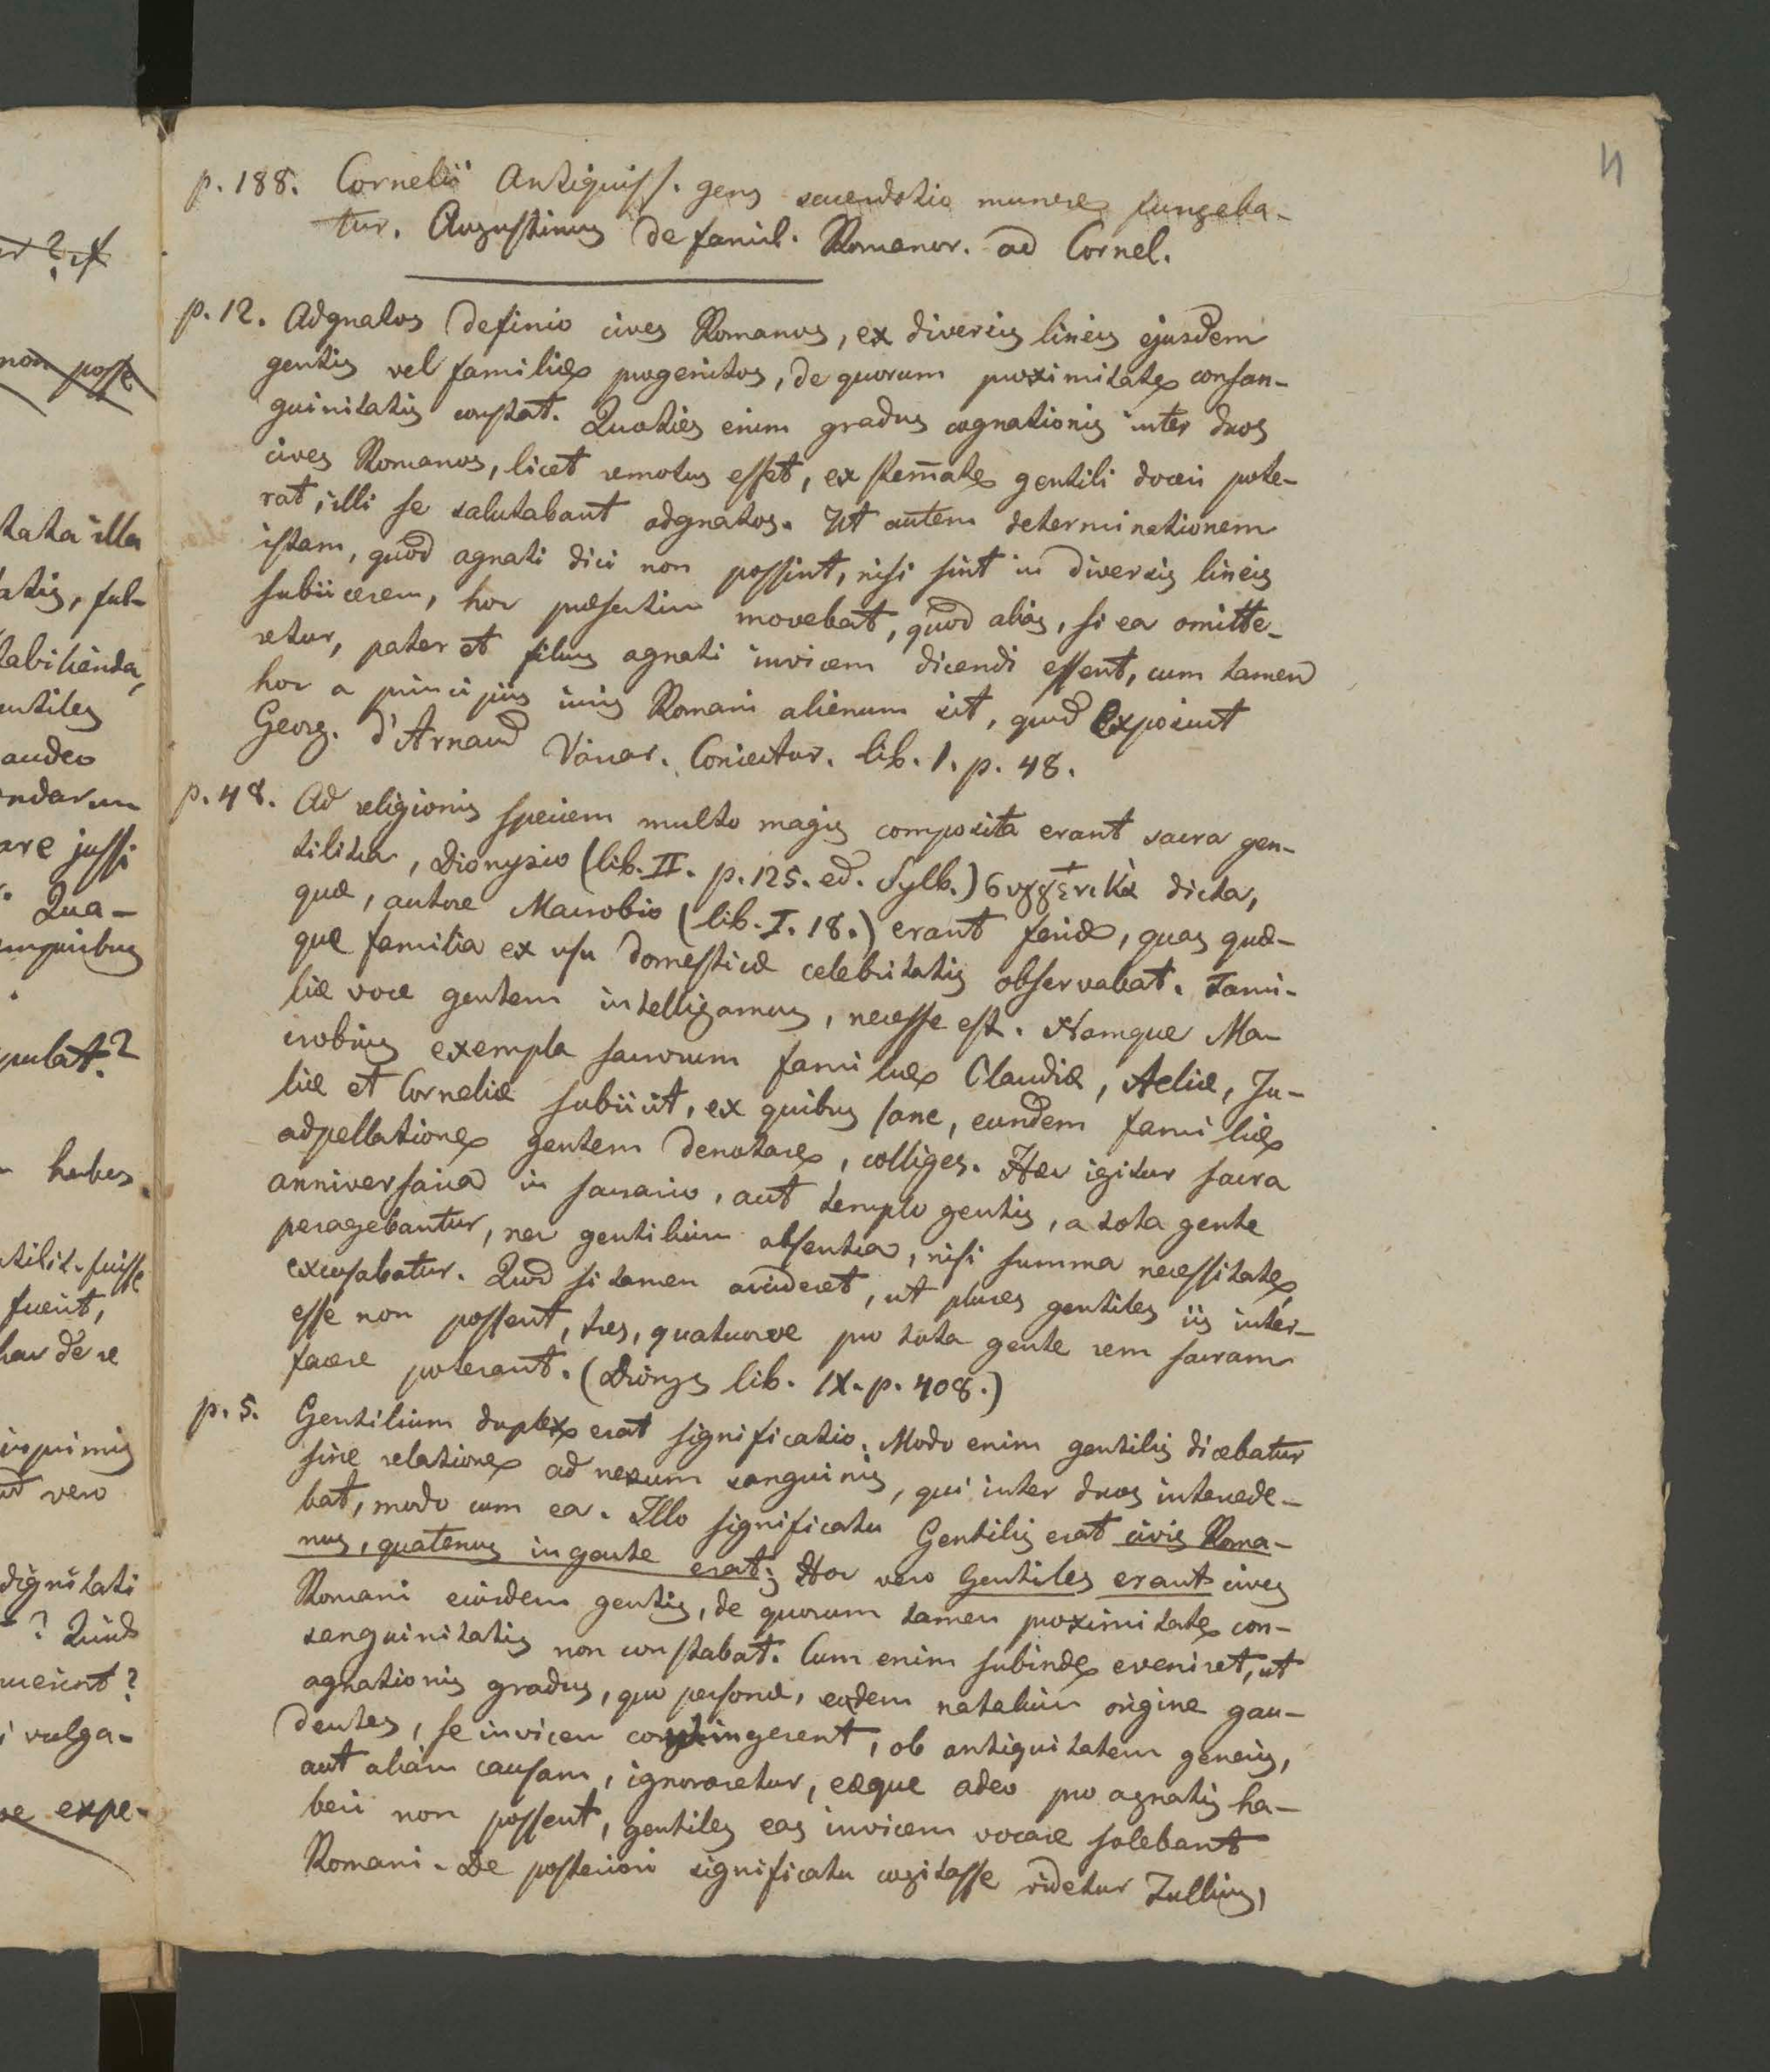 4
p. 188. Cornelii Antiquiss. gens sacerdotio munere fungeba-
tur. Augustinus de famil. Romanor. ad Cornel.
p. 12. Adgnatos definio cives Romanos, ex diversis lineis ejusdem
gentis vel familiae progenitos, de quorum proximitate consan-
guinitatis constat. Quoties enim gradus cognationis inter duos
cives Romanos, licet remotus esset, ex stem̄ate gentili doceri pote-
rat, illi se salutabant adgnatos. Ut autem determinationem
istam, quod agnati dici non possint, nisi sint in diversis lineis
subiicerem, hoc praesertim movebat, quod alias, si ea omitte-
retur, pater et filius agnati invicem dicendi essent, cum tamen
hoc a principiis iuris Romani alienum sit, quod exposuit
Georg. d'Arnaud Variar. Coniectur. lib. 1. p. 48.
p. 48. Ad religionis speciem multo magis composita erant sacra gen-
tilitia, Dionysio (lib. II. p. 125. ed. Sylb.) συγγενικὰ dicta,
quae, autore Macrobio (lib. I. 18.) erant feriae, quas quae-
que familia ex usu domesticae celebritatis observabat. Fami-
liae voce gentem intelligamus, necesse est. Namque Ma-
crobius exempla sacrorum familiae Claudiae, Aeliae, Ju-
liae et Corneliae subiicit, ex quibus sane, eundem familiae
adpellatione gentem denotare, colliges. Haec igitur sacra
anniversaria in sacrario, aut templo gentis, a tota gente
peragebantur, nec gentilium absentia, nisi summa necessitate,
excusabatur. Quod si tamen accideret, ut plures gentiles iis inter-
esse non possent, tres, quatuorve pro tota gente rem sacram
facere poterant. (Dionys lib. IX. p. 408.)
p. 5. Gentilium duplex erat significatio. Modo enim gentilis dicebatur
sine relatione ad nexum sanguinis, qui inter duos intercede-
bat, modo cum ea. Illo significatu Gentilis erat civis Roma-
nus, quatenus in gente erat; Hoc vero Gentiles erant cives
Romani eiusdem gentis, de quorum tamen proximitate con-
sanguinitatis non constabat. Cum enim subinde eveniret, ut
agnationis gradus, quo personae, eadem natalium origine gau-
dentes, se invicem contingerent, ob antiquitatem generis,
aut aliam causam, ignoraretur, eaeque adeo pro agnatis ha-
beri non possent, gentiles eas invicem vocare solebant
Romani. De posteriori significatu cogitasse videtur Tullius,